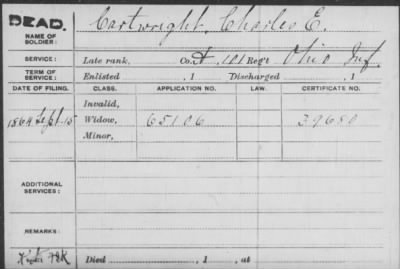 DEAD.
Cartwright, Charles E.
NAME OF
SOLDIER:
SERVICE:
Late rank, Co. A, 101 Reg't Ohio Inf.
TERM OF
SERVICE:
Enlisted , 1 Discharged , 1
DATE OF FILING. CLASS. APPLICATION NO. LAW. CERTIFICATE NO.
Invalid,
1864 Sept. 15 Widow, 65106 39680
Minor,
ADDITIONAL
SERVICES:
REMARKS:
Died , 1 , at